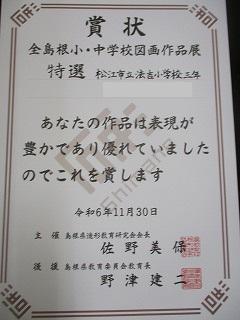 賞状
全島根小・中学校図画作品展
特選 松江市立法吉小学校三年
あなたの作品は表現が
豊かであり優れていました
のでこれを賞します
令和6年11月30日
主催 島根県造形教育研究会会長
佐野美保
後援 島根県教育委員会教育長
野津建二